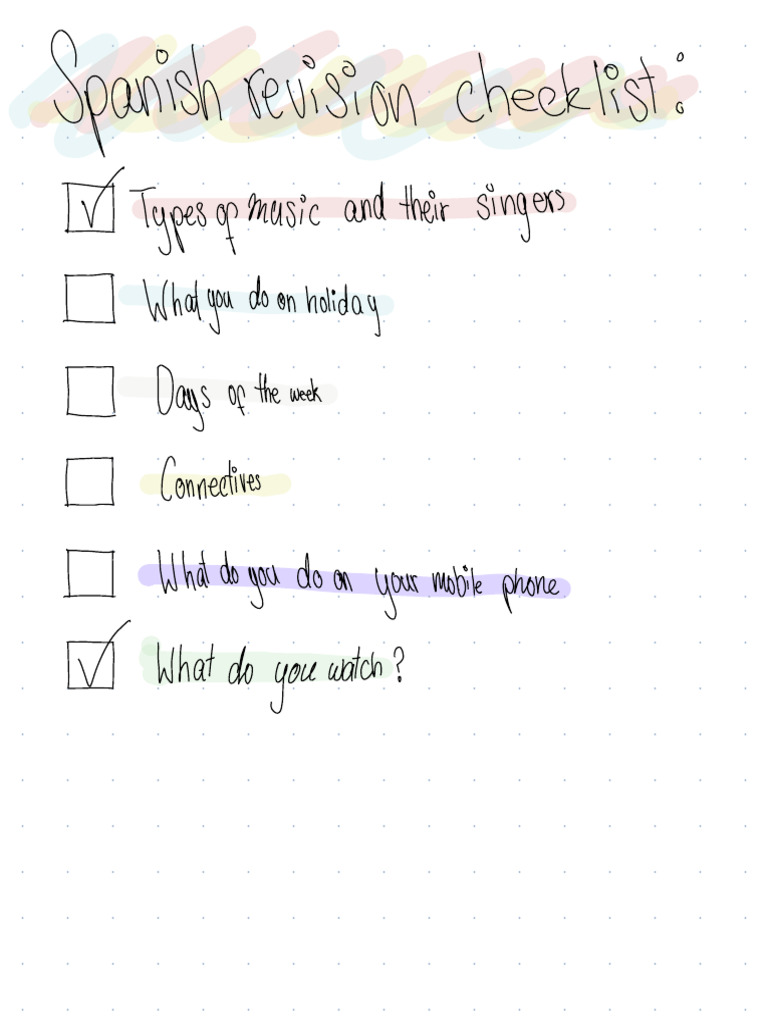 Spanish revision checklist:
Types of music and their singers
What you do on holiday
Days of the week
Connectives
What do you do on your mobile phone
What do you watch?